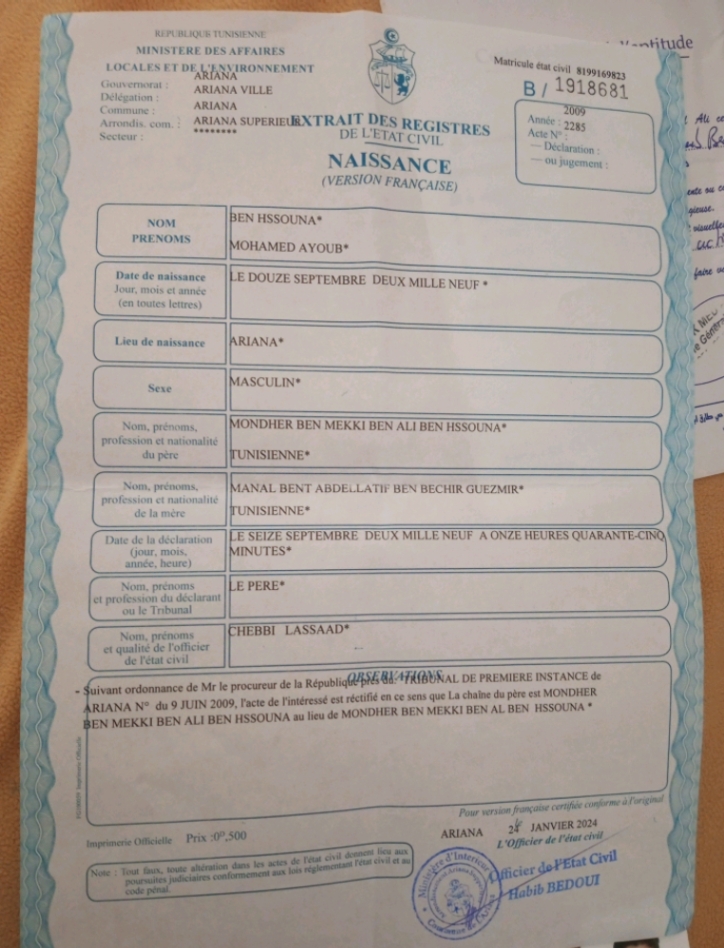 REPUBLIQUE TUNISIENNE
MINISTERE DES AFFAIRES
LOCALES ET DE L'ENVIRONNEMENT
Gouvernorat : ARIANA
Délégation : ARIANA VILLE
Commune : ARIANA
Arrondis. com. : ARIANA SUPERIEUR
Secteur : ********
Matricule état civil 8199169823
B / 1918681
Année : 2009
Acte N° : 2285
— Déclaration :
— ou jugement :
EXTRAIT DES REGISTRES
DE L'ETAT CIVIL
NAISSANCE
(VERSION FRANÇAISE)
NOM BEN HSSOUNA*
PRENOMS MOHAMED AYOUB*
Date de naissance LE DOUZE SEPTEMBRE DEUX MILLE NEUF *
Jour, mois et année
(en toutes lettres)
Lieu de naissance ARIANA*
Sexe MASCULIN*
Nom, prénoms, MONDHER BEN MEKKI BEN ALI BEN HSSOUNA*
profession et nationalité
du père TUNISIENNE*
Nom, prénoms, MANAL BENT ABDELLATIF BEN BECHIR GUEZMIR*
profession et nationalité
de la mère TUNISIENNE*
Date de la déclaration LE SEIZE SEPTEMBRE DEUX MILLE NEUF A ONZE HEURES QUARANTE-CINQ
(jour, mois, MINUTES*
année, heure)
Nom, prénoms LE PERE*
et profession du déclarant
ou le Tribunal
Nom, prénoms CHEBBI LASSAAD*
et qualité de l'officier
de l'état civil
OBSERVATIONS
- Suivant ordonnance de Mr le procureur de la République près du TRIBUNAL DE PREMIERE INSTANCE de
ARIANA N° du 9 JUIN 2009, l'acte de l'intéressé est réctifié en ce sens que La chaîne du père est MONDHER
BEN MEKKI BEN ALI BEN HSSOUNA au lieu de MONDHER BEN MEKKI BEN AL BEN HSSOUNA *
Imprimerie Officielle
Pour version française certifiée conforme à l'original
Imprimerie Officielle Prix :0ᴰ,500
ARIANA 24 JANVIER 2024
L'Officier de l'état civil
Note : Tout faux, toute altération dans les actes de l'état civil donnent lieu aux
poursuites judiciaires conformement aux lois réglementant l'état civil et au
code pénal.
Officier de l'Etat Civil
Habib BEDOUI
Ministère d'Interieur